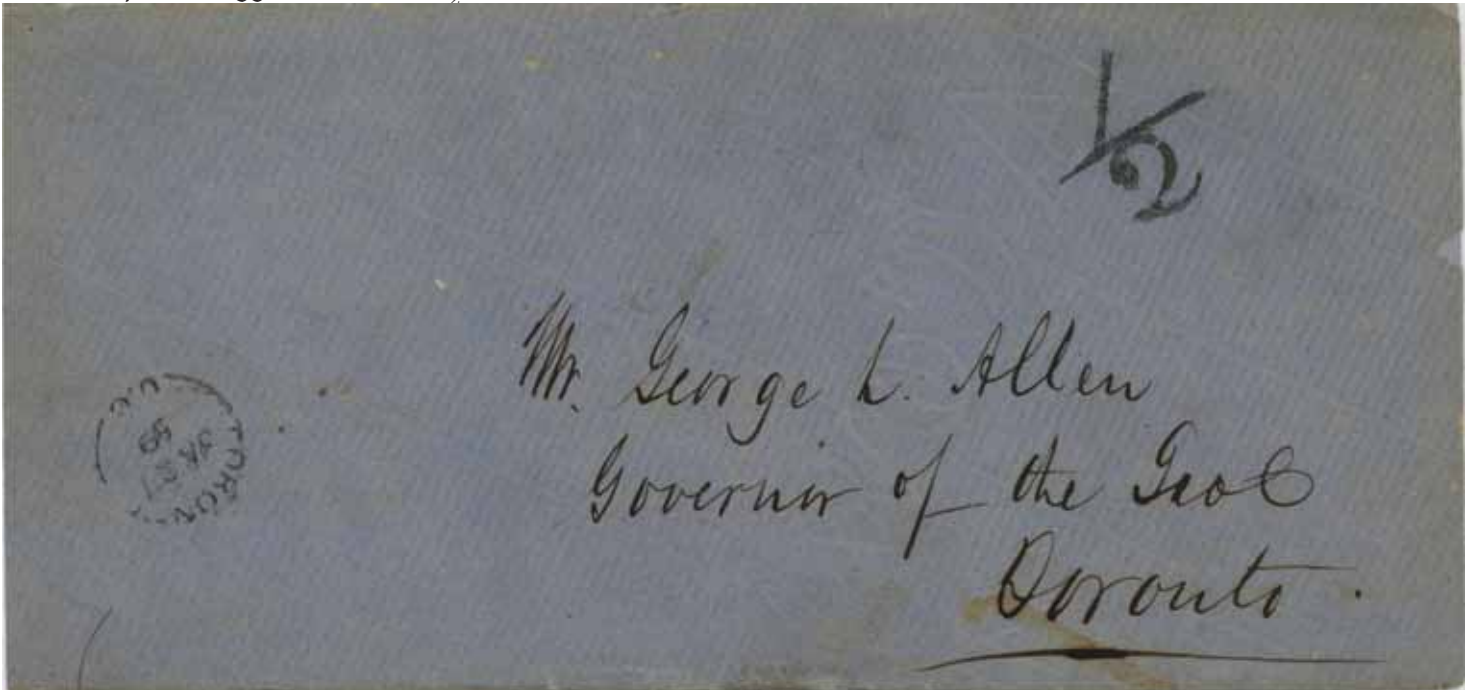 1/2
Mr. George L. Allen
Governor of the Gaol
Toronto.
TORON
JA 27
59
U.C.